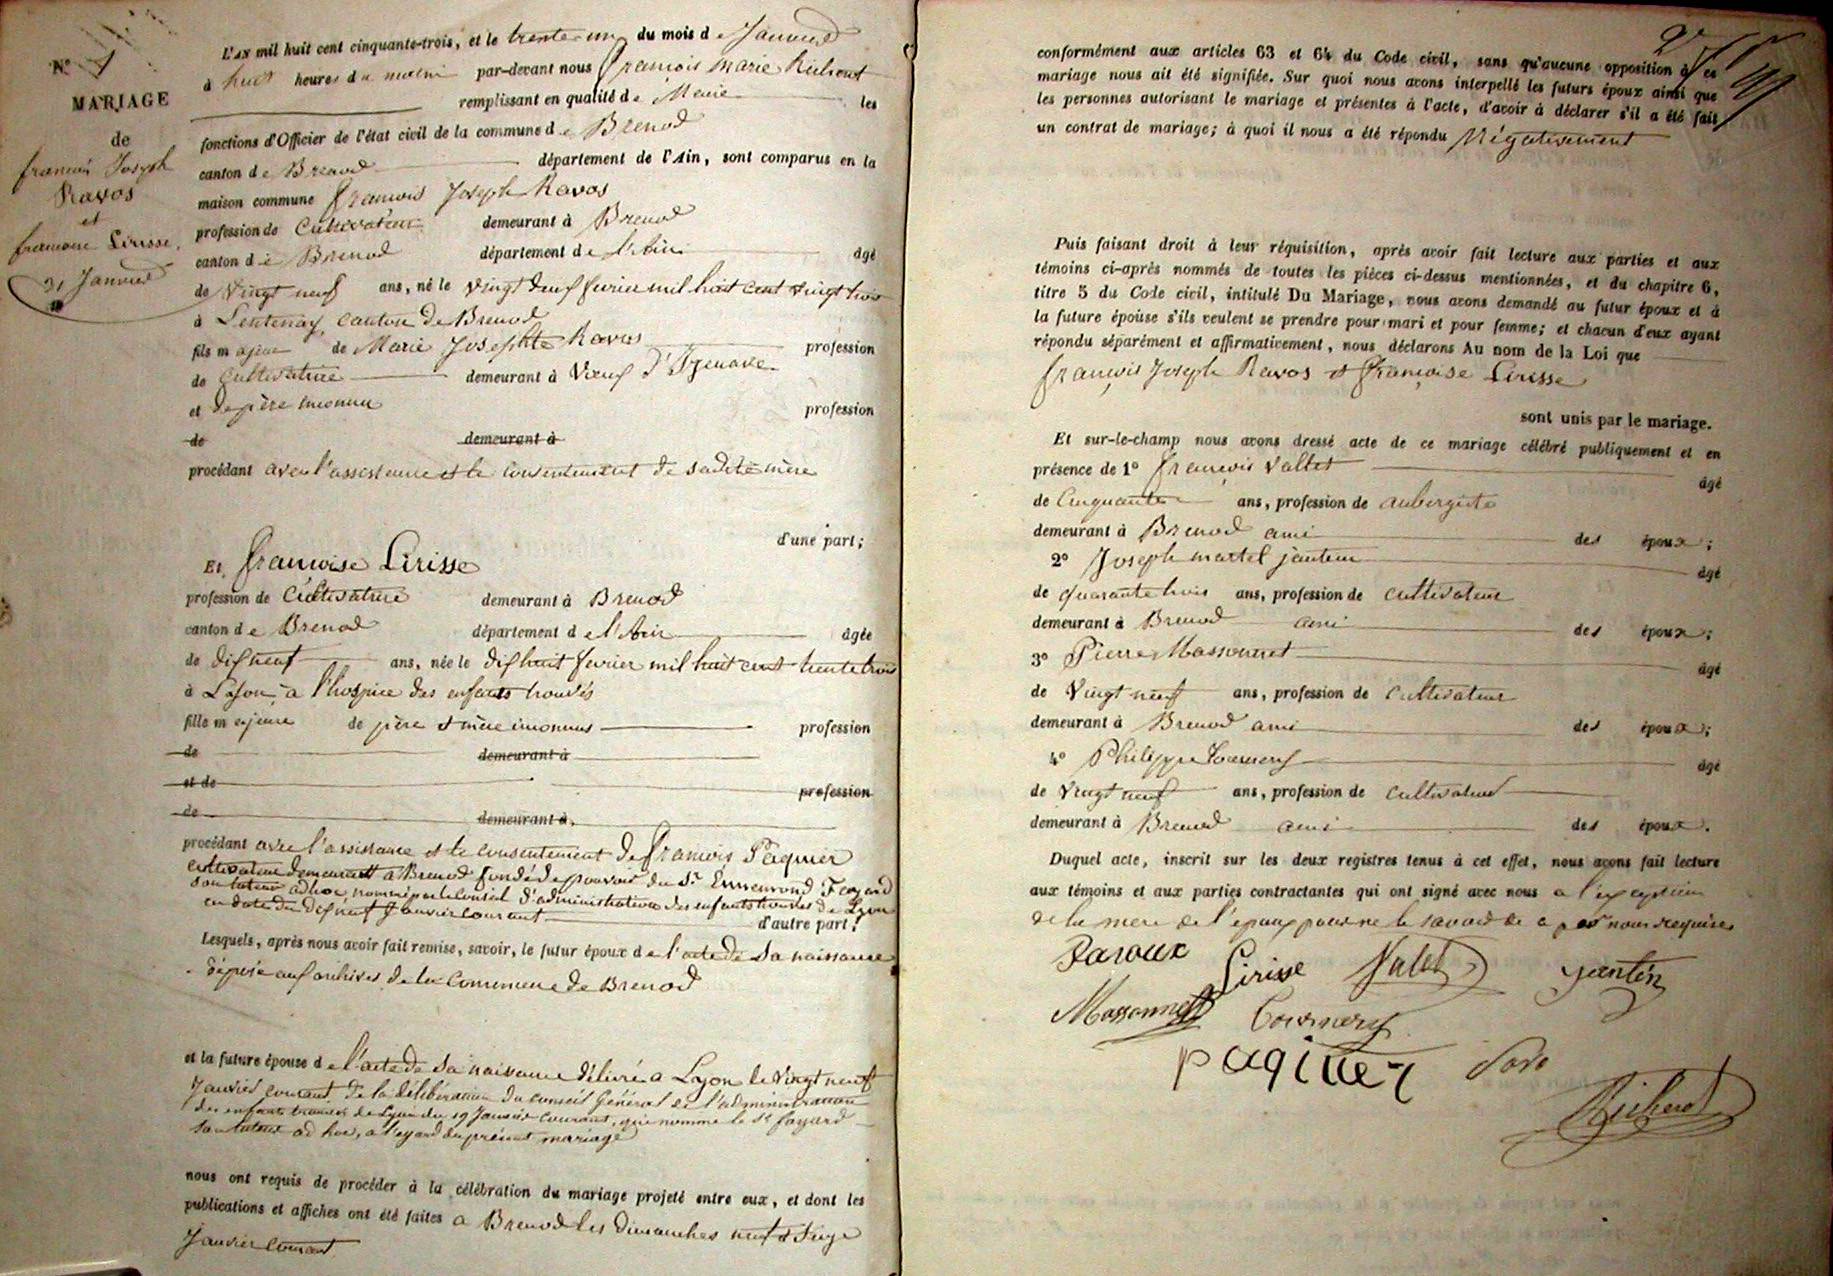 N° 1
MARIAGE
de
françois Joseph
Ravos
et
francoise Lirisse.
31 Janvier
L'AN mil huit cent cinquante-trois, et le trente-un du mois de Janvier
à huit heures du matin par-devant nous François Marie Richerot
remplissant en qualité de Maire les
fonctions d'Officier de l'état civil de la commune de Brenod
canton de Brenod département de l'Ain, sont comparus en la
maison commune François Joseph Ravos
profession de Cultivateur demeurant à Brenod
canton de Brenod département de l'Ain âgé
de vingt neuf ans, né le vingt deux fevrier mil huit cent vingt trois
à Lentenay, canton de Brenod
fils majeur de Marie Josephte Ravos profession
de Cultivatrice demeurant à Vieux d'Izenave
et de père inconnu profession
de demeurant à
procédant avec l'assistance et le consentement de sadite mère
d'une part;
Et francoise Lirisse
profession de Cultivatrice demeurant à Brenod
canton de Brenod département de l'Ain âgée
de dix neuf ans, née le dix huit fevrier mil huit cent trente trois
à Lyon à l'hospice des enfants trouvés
fille majeure de père et mère inconnus profession
de demeurant à
et de profession
de demeurant à
procédant avec l'assistance et le consentement de francois Paquier
cultivateur demeurant à Brenod fondé de pouvoir du Sr Ennemond Fayard
son tuteur ad hoc nommé par le Conseil d'administration des enfants trouvés de Lyon
en date du dix neuf Janvier courant d'autre part;
Lesquels, après nous avoir fait remise, savoir, le futur époux de l'acte de sa naissance
déposé aux archives de la Commune de Brenod
et la future épouse de l'acte de sa naissance délivré a Lyon le vingt neuf
Janvier courant. De la délibération du conseil Général de l'administration
des enfants trouvés de Lyon du 19 Janvier courant, qui nomme le Sr fayard
son tuteur ad hoc, a l'egard du présent mariage
nous ont requis de procéder à la célébration du mariage projeté entre eux, et dont les
publications et affiches ont été faites a Brenod les dimanches neuf et seize
Janvier courant
conformément aux articles 63 et 64 du Code civil, sans qu'aucune opposition à ce
mariage nous ait été signifiée. Sur quoi nous avons interpellé les futurs époux ainsi que
les personnes autorisant le mariage et présentes à l'acte, d'avoir à déclarer s'il a été fait
un contrat de mariage; à quoi il nous a été répondu Négativement
Puis faisant droit à leur réquisition, après avoir fait lecture aux parties et aux
témoins ci-après nommés de toutes les pièces ci-dessus mentionnées, et du chapitre 6,
titre 5 du Code civil, intitulé Du Mariage, nous avons demandé au futur époux et à
la future épouse s'ils veulent se prendre pour mari et pour femme; et chacun d'eux ayant
répondu séparément et affirmativement, nous déclarons Au nom de la Loi que
françois Joseph Ravos et françoise Lirisse
sont unis par le mariage.
Et sur-le-champ nous avons dressé acte de ce mariage célébré publiquement et en
présence de 1° françois Vallet âgé
de Cinquante ans, profession de aubergiste
demeurant à Brenod ami des époux;
2° Joseph martel janten âgé
de quarante trois ans, profession de cultivateur
demeurant à Brenod ami des époux;
3° Pierre Massonnet âgé
de vingt neuf ans, profession de cultivateur
demeurant à Brenod ami des époux;
4° Philippe Tournery âgé
de vingt neuf ans, profession de cultivateur
demeurant à Brenod ami des époux.
Duquel acte, inscrit sur les deux registres tenus à cet effet, nous avons fait lecture
aux témoins et aux parties contractantes qui ont signé avec nous a l'exception
de la mere de l'epoux pour ne le savoir de a par nous requise
Ravoux Lirisse Valet Jantin
Massonnet Tournery
paquier
Richerot